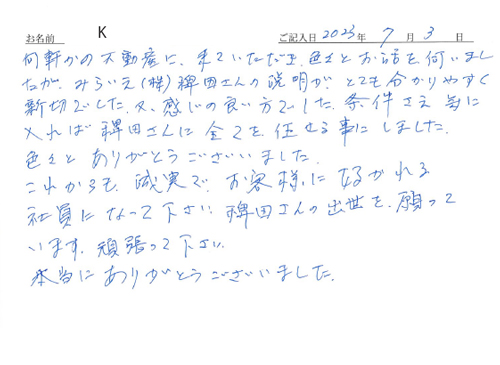 お名前 K ご記入日 2023年 7月 3日
何軒かの不動産に、来ていただき、色々とお話を伺いまし
たが、みらいえ(株)稗田さんの説明が、とても分かりやすく
新切でした。又、感じの良い方でした。条件さえ気に
入れば稗田さんに全てを任せる事にしました。
色々とありがとうございました。
これからも、誠実で、お客様に好かれる
社員になって下さい。稗田さんの出世を、願って
います。頑張って下さい。
本当にありがとうございました。